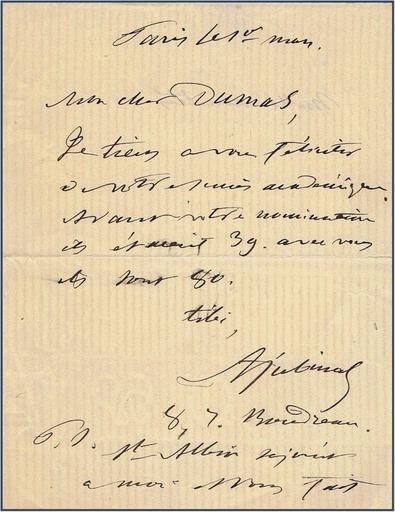 Paris le 1er mars.
Mon cher Dumas,
Je tiens a vous féliciter
de votre succès académique.
Avant votre nomination
ils étaient 39. avec vous
ils sont 80.
tibi,
AJubinal
8, r. Boudreau.
P.S. St Albin
a moi